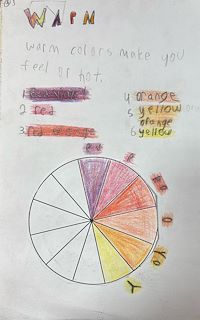 WARM
warm colors make you
feel or hot.
1
2 red
3 red orange
4 orange
5 yellow
orange
6 yellow
R
O
YO
Y